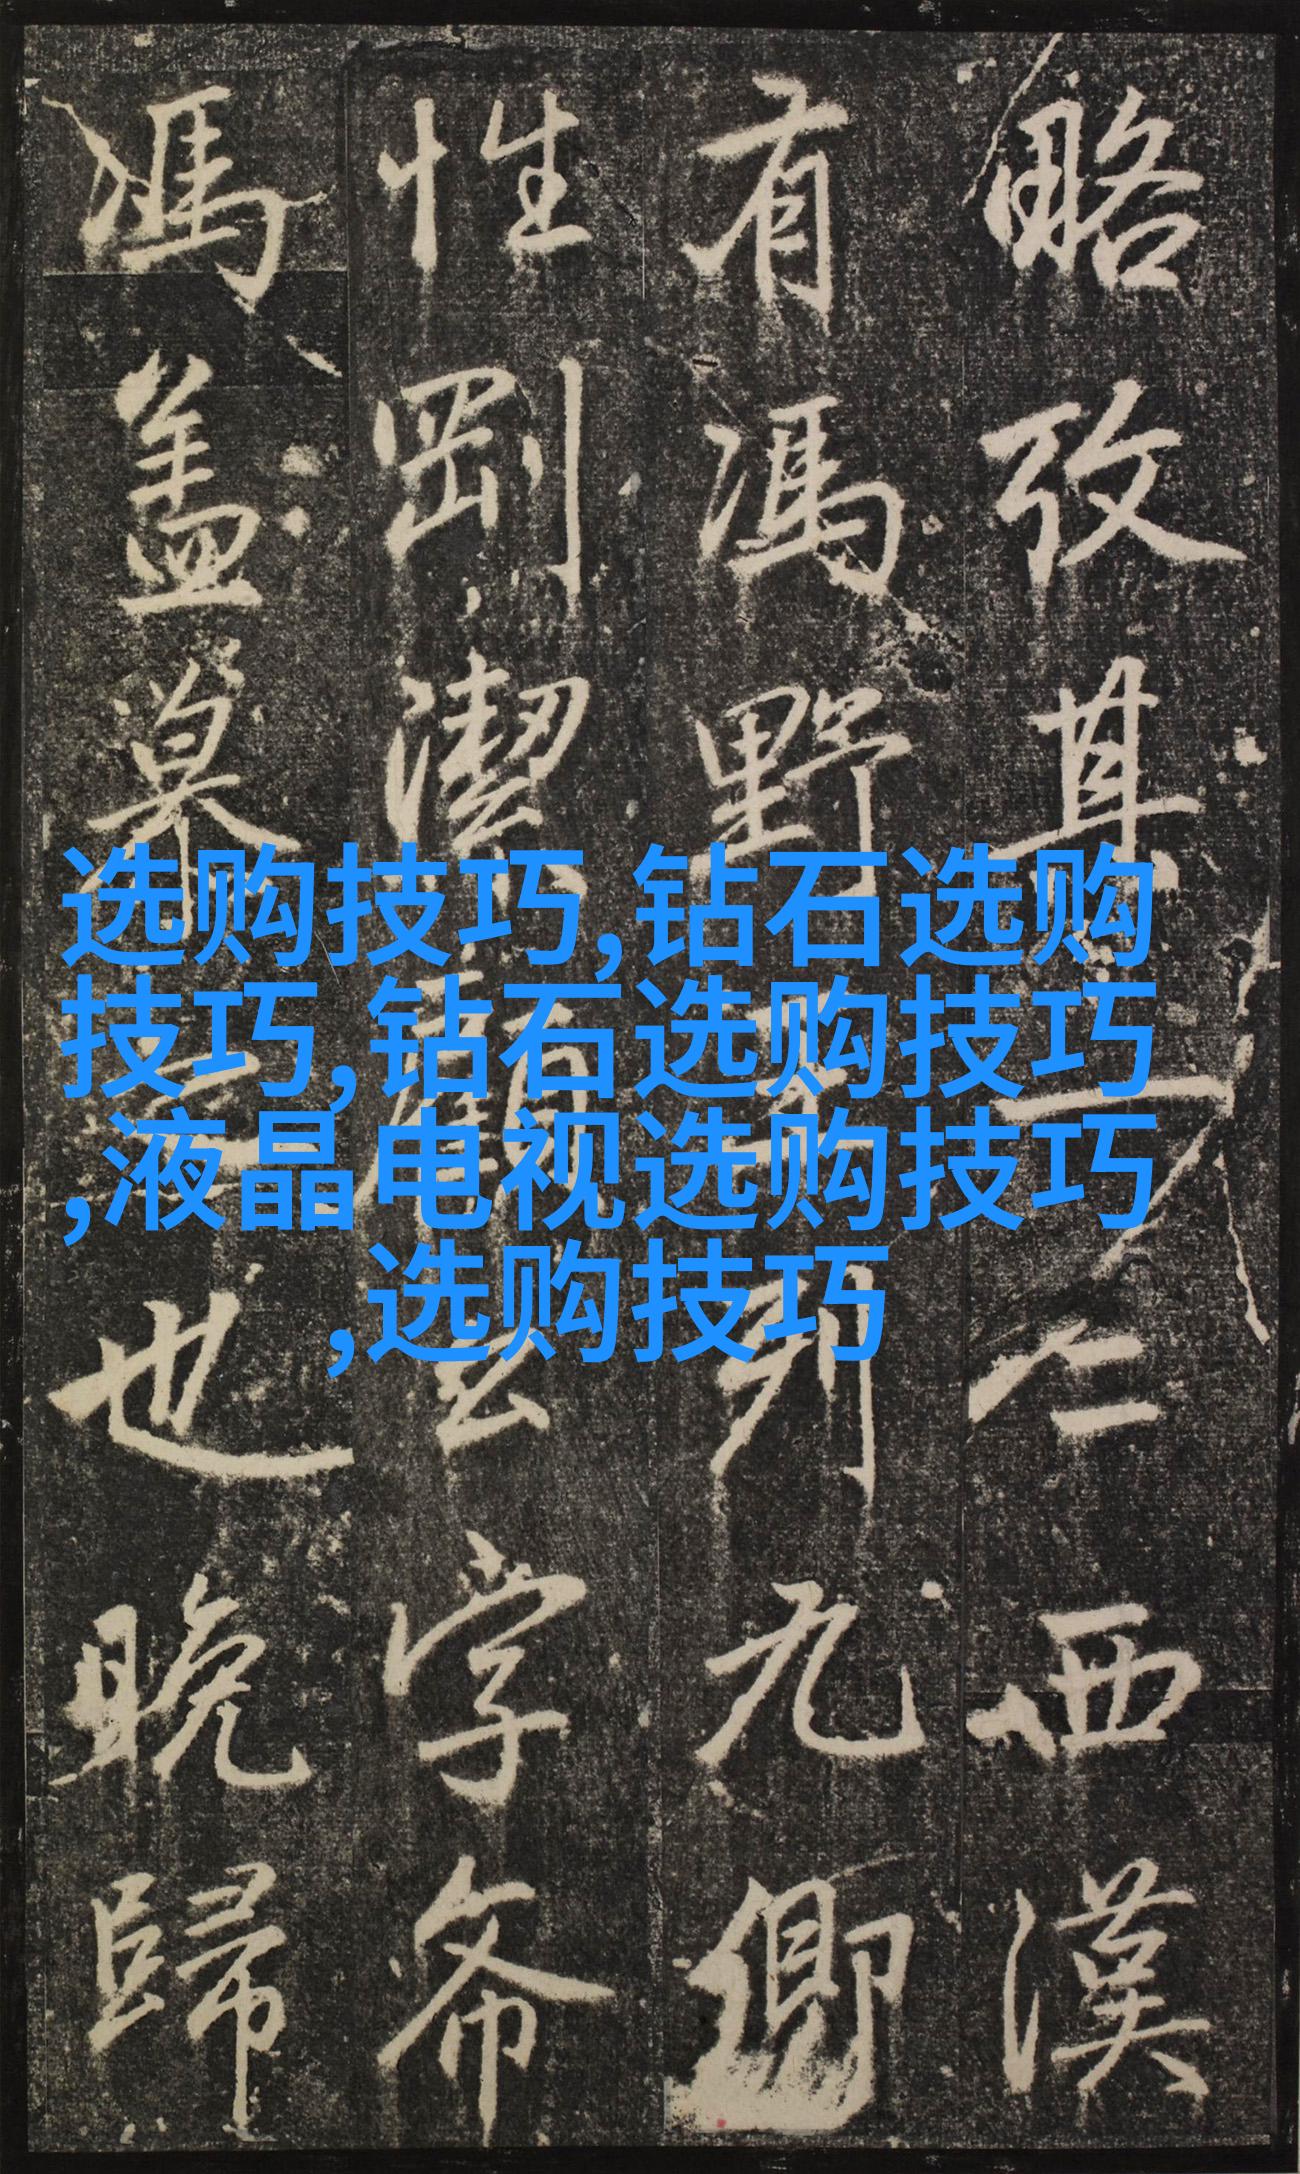 略攷其一二西漢
有馮野王列九卿
性剛潔顧字希
馮盖慕之也晚歸
选购技巧,钻石选购
技巧,钻石选购技巧
,液晶电视选购技巧
,选购技巧